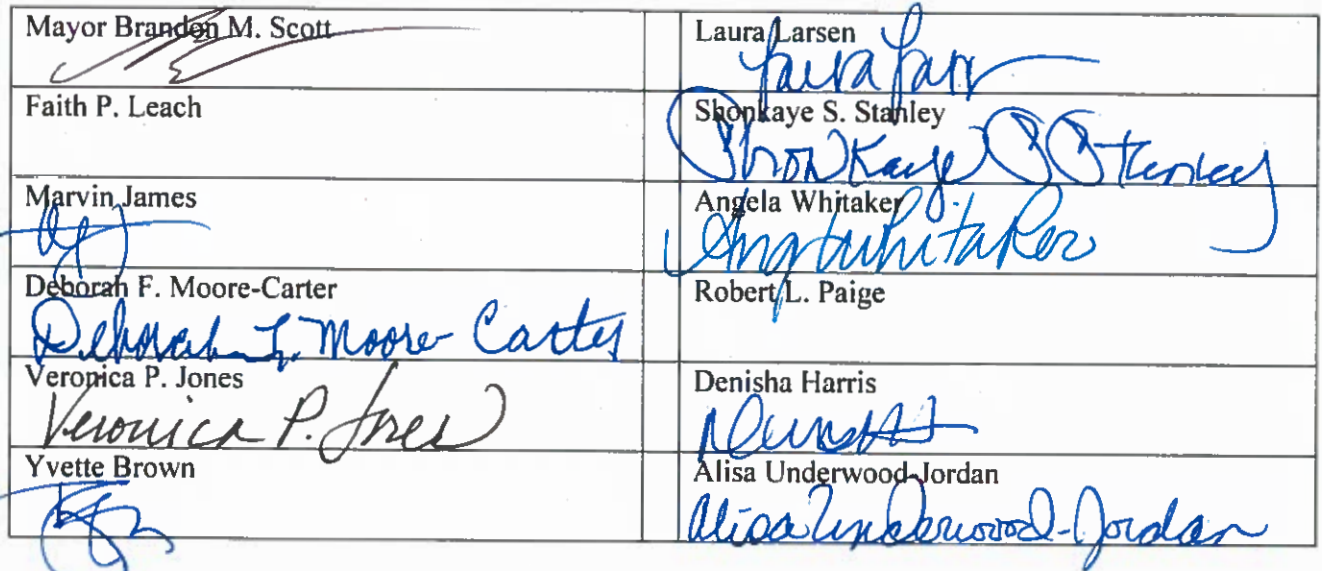 Mayor Brandon M. Scott
Laura Larsen
Faith P. Leach
Shonkaye S. Stanley
Shonkaye S Stanley
Marvin James
Angela Whitaker
Ang Whitaker
Deborah F. Moore-Carter
Deborah F. Moore-Carter
Robert L. Paige
Veronica P. Jones
Veronica P. Jones
Denisha Harris
Yvette Brown
Alisa Underwood-Jordan
Alisa Underwood-Jordan